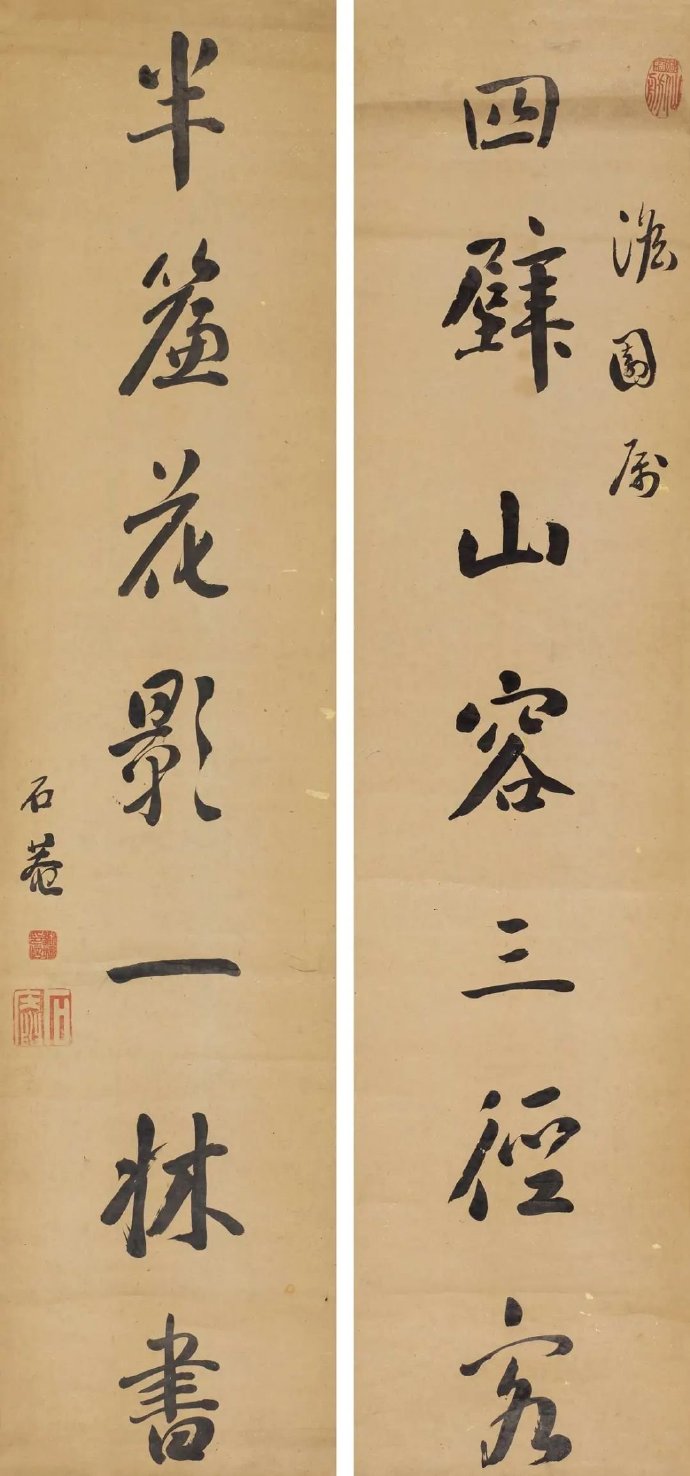 澹園属
四壁山容三徑客
半簾花影一牀書
石菴